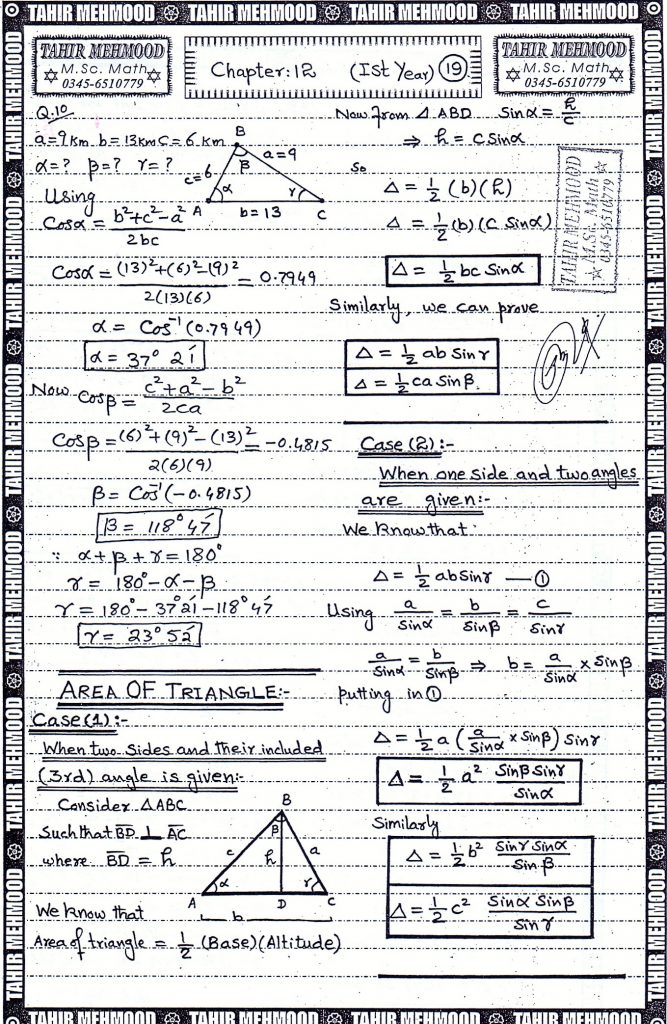 TAHIR MEHMOOD TAHIR MEHMOOD TAHIR MEHMOOD TAHIR MEHMOOD
TAHIR MEHMOOD
M.Sc. Math
0345-6510779
Chapter:12 (Ist Year) 19
TAHIR MEHMOOD
M.Sc. Math
0345-6510779
Q.10
a=9km b=13km c=6km
α=? β=? γ=?
B
β
c=6
a=9
α
γ
A
b=13
C
Using
Cosα = (b²+c²-a²)/2bc
Cosα = ((13)²+(6)²-(9)²)/2(13)(6) = 0.7949
α = Cos⁻¹(0.7949)
α = 37° 21'
Now Cosβ = (c²+a²-b²)/2ca
Cosβ = ((6)²+(9)²-(13)²)/2(6)(9) = -0.4815
β = Cos⁻¹(-0.4815)
β = 118° 47'
∵ α+β+γ=180°
γ = 180°-α-β
γ = 180°-37°21'-118°47'
γ = 23° 52'
AREA OF TRIANGLE:-
Case(1):-
When two sides and their included
(3rd) angle is given:-
Consider ΔABC
Such that BD ⊥ AC
where BD = h
B
β
c
h
a
α
γ
A
D
C
b
We know that
Area of triangle = 1/2 (Base)(Altitude)
Now from Δ ABD Sinα = h/c
⇒ h = c Sinα
So
Δ = 1/2 (b)(h)
Δ = 1/2 (b)(c Sinα)
Δ = 1/2 bc Sinα
TAHIR MEHMOOD
M.Sc. Math
0345-6510779
Similarly, we can prove
Δ = 1/2 ab Sinγ
Δ = 1/2 ca Sinβ.
Case (2):-
When one side and two angles
are given:-
We know that
Δ = 1/2 ab Sinγ — ①
Using a/Sinα = b/Sinβ = c/Sinγ
a/Sinα = b/Sinβ ⇒ b = a/Sinα × Sinβ
putting in ①
Δ = 1/2 a (a/Sinα × Sinβ) Sinγ
Δ = 1/2 a² SinβSinγ/Sinα
Similarly
Δ = 1/2 b² Sinγ Sinα/Sinβ
Δ = 1/2 c² Sinα Sinβ/Sinγ
TAHIR MEHMOOD TAHIR MEHMOOD TAHIR MEHMOOD TAHIR MEHMOOD